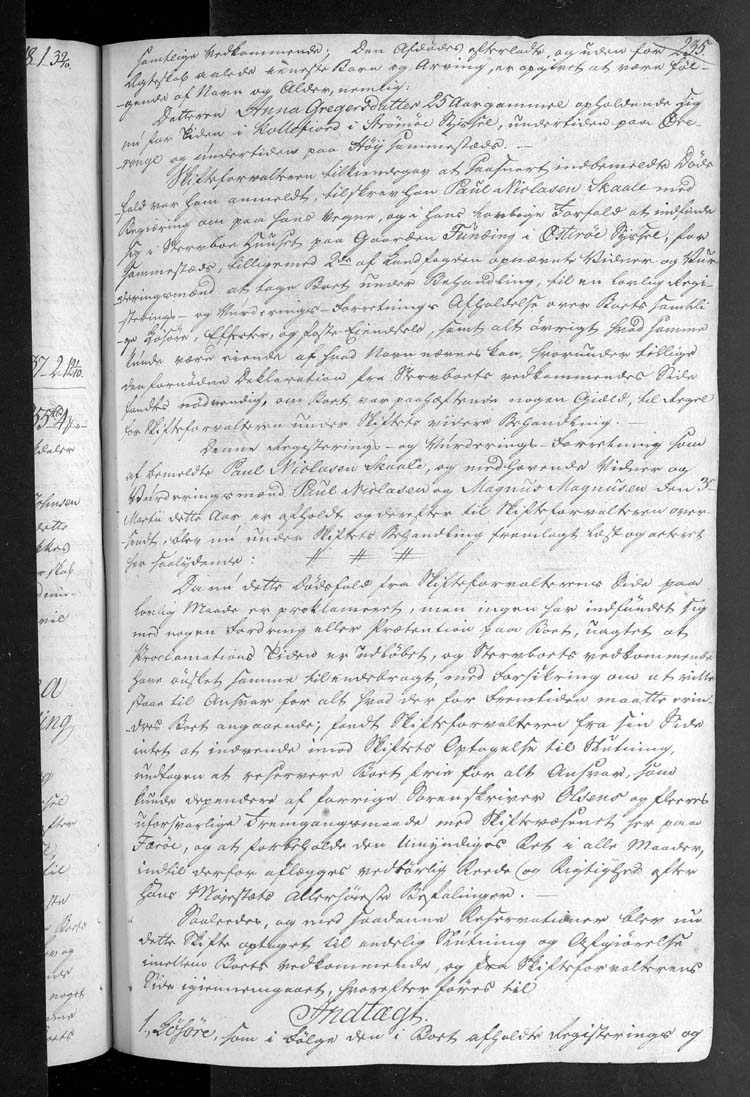 235.
samtlige Vedkommende; Den Afdødes efterladte, og uden for
Ægteskab avlede eeneste Barn og Arving, er opgivet at være føl-
gende af Navn og Alder, nemlig:
Datteren Anna Gregersdatter 25 Aar gammel opholdende sig
nu for Tiden i Kollefiord i Strømøe Syssel, undertiden paa Øre-
renge og undertiden paa Høÿ sammestæds. —
Skifteforvalteren tilkiendegav at saasnart indbemeldte Døds
fald var ham anmeldt, tilskrev han Paul Niclasen Skaale med
Begiæring om paa hans Vegne, og i hans lovbøige Forfald at indfinde
sig i Stervboe Huuset paa Gaarden Funding i Østerøe Syssel, for
sammestæds, tilligemed 2de af Landfogden opnævnte Vidner og Vur-
deringsmænd at tage Boet under Behandling, til en lovlig Regi-
sterings- og Vurderings-Forretnings Afholdelse over Boets samtli-
ge Løsøre, Effecter, og faste Eiendeele, samt alt øvrigt hvad samme
kunde være eiende af hvad Navn nævnes kan, hvorunder tillige
den fornødne Deklaration fra Stervboets vedkommendes Side
fandtes nødvendig, om Boet var paahæftende nogen Giæld, til Regel
for Skifteforvalteren under Skiftets videre Behandling. —
Denne Registerings- og Vurderings-Forretning som
af bemeldte Paul Niclasen Skaale, og medhavende Vidner og
Vurderingsmænd Paul Niclasen og Magnus Magnusen den 3
Martii dette Aar er afholdt og derefter til Skifteforvalteren over-
sendt, blev nu under Skiftets Behandling fremlagt læst og acteret
her saalydende: # # #
Da nu dette Dødsfald fra Skifteforvalterens Side paa
lovlig Maade er proklameret, men ingen har indfundet sig
med nogen Fordring eller Prætention paa Boet, uagtet at
Proclamations Tiden er udløbet, og Stervboets vedkommende
have ønsket samme tilendebragt, med Forsikring om at ville
staae til Ansvar for alt hvad der for Fremtiden maatte erin-
dres Boet angaaende; fandt Skifteforvalteren fra sin Side
intet at indvende imod Skiftets Optagelse til Slutning,
undtagen at reservere Boet frie for alt Ansvar, som
kunde dependere af forrige Sorenskriver Olsens og fleeres
uforsvarlige Fremgangsmaade med Skiftevæsenet her paa
Færøe, og at forbeholde den Umyndiges Ret i alle Maader,
indtil der aflægges vedbørlig Reede (og Rigtighed efter
Hans Majestæts Allerhøieste Befalinger. —
Saaledes, og med saadanne Reservationer blev nu
dette Skifte optaget til endelig Slutning og Afgiørelse
imellem Boets vedkommende, og fra Skifteforvalterens
Side igiennemgaaet, hvorefter føres til
Indtægt.
1., Løsøre, som i Følge den i Boet afholdte Registerings og